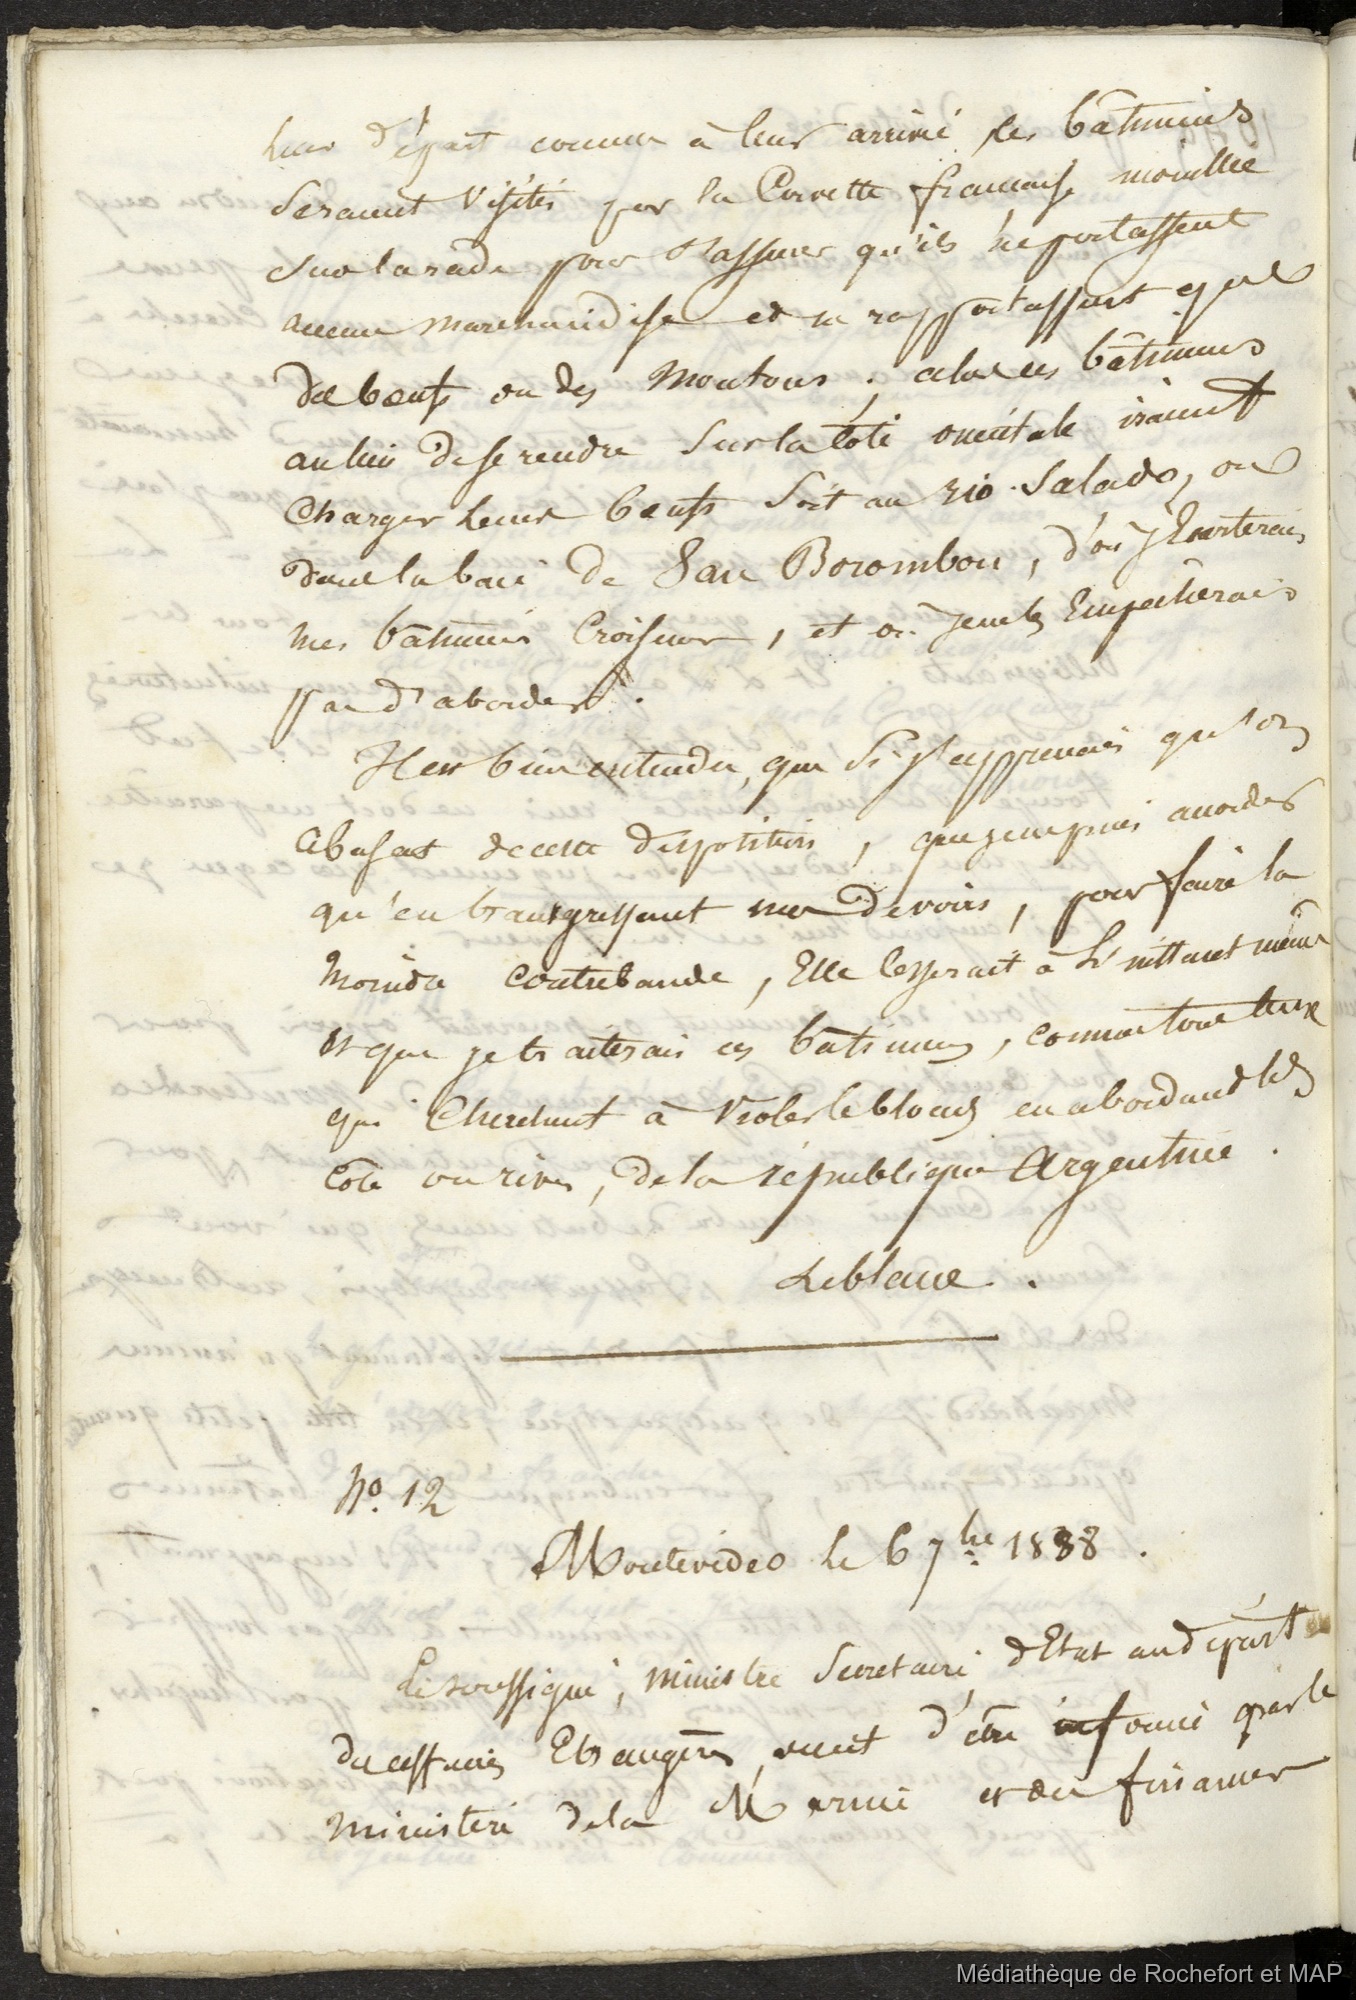 leur départ comme à leur arrivé les bâtimens
seraient visités par la Corvette française mouillée
sur la rade pour s'assurer qu'ils ne portassent
aucune marchandise et ne rapportassent que
des boeufs ou des moutons ; alors ces bâtimens
au lieu de se rendre sur la Côte orientale iraient
Charger leurs boeufs soit au rio Salado, ou
dans la baie de San Borombon, d'où j'Ecarterais
mes bâtimens Croiseurs, et où je ne les Empêcherais
pas d'aborder.
Il est bien entendu, que si j'apprenais qu'on
abusat de cette disposition, que je ne puis accorder
qu'en transgressant mes devoirs, pour faire la
moindre contrebande, Elle cesserait à l'instant même
et que je traiterais ces bâtimens, comme tous ceux
qui Cherchent à violer le blocus en abordant les
Côte ou rives, de la république Argentine.
Leblanc.
No. 12
Montevideo le 6 7bre 1838.
Le soussigné, ministre Secretaire d'Etat au départt
des affaires Etrangères, vient d'être informé par le
ministère de la Marine et des finances
Médiathèque de Rochefort et MAP